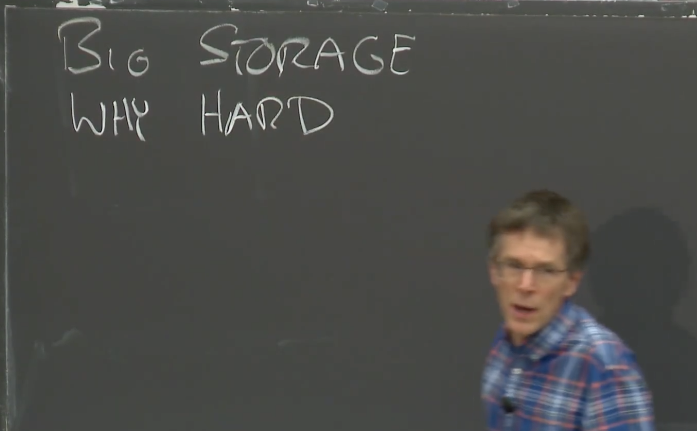 BIG STORAGE
WHY HARD